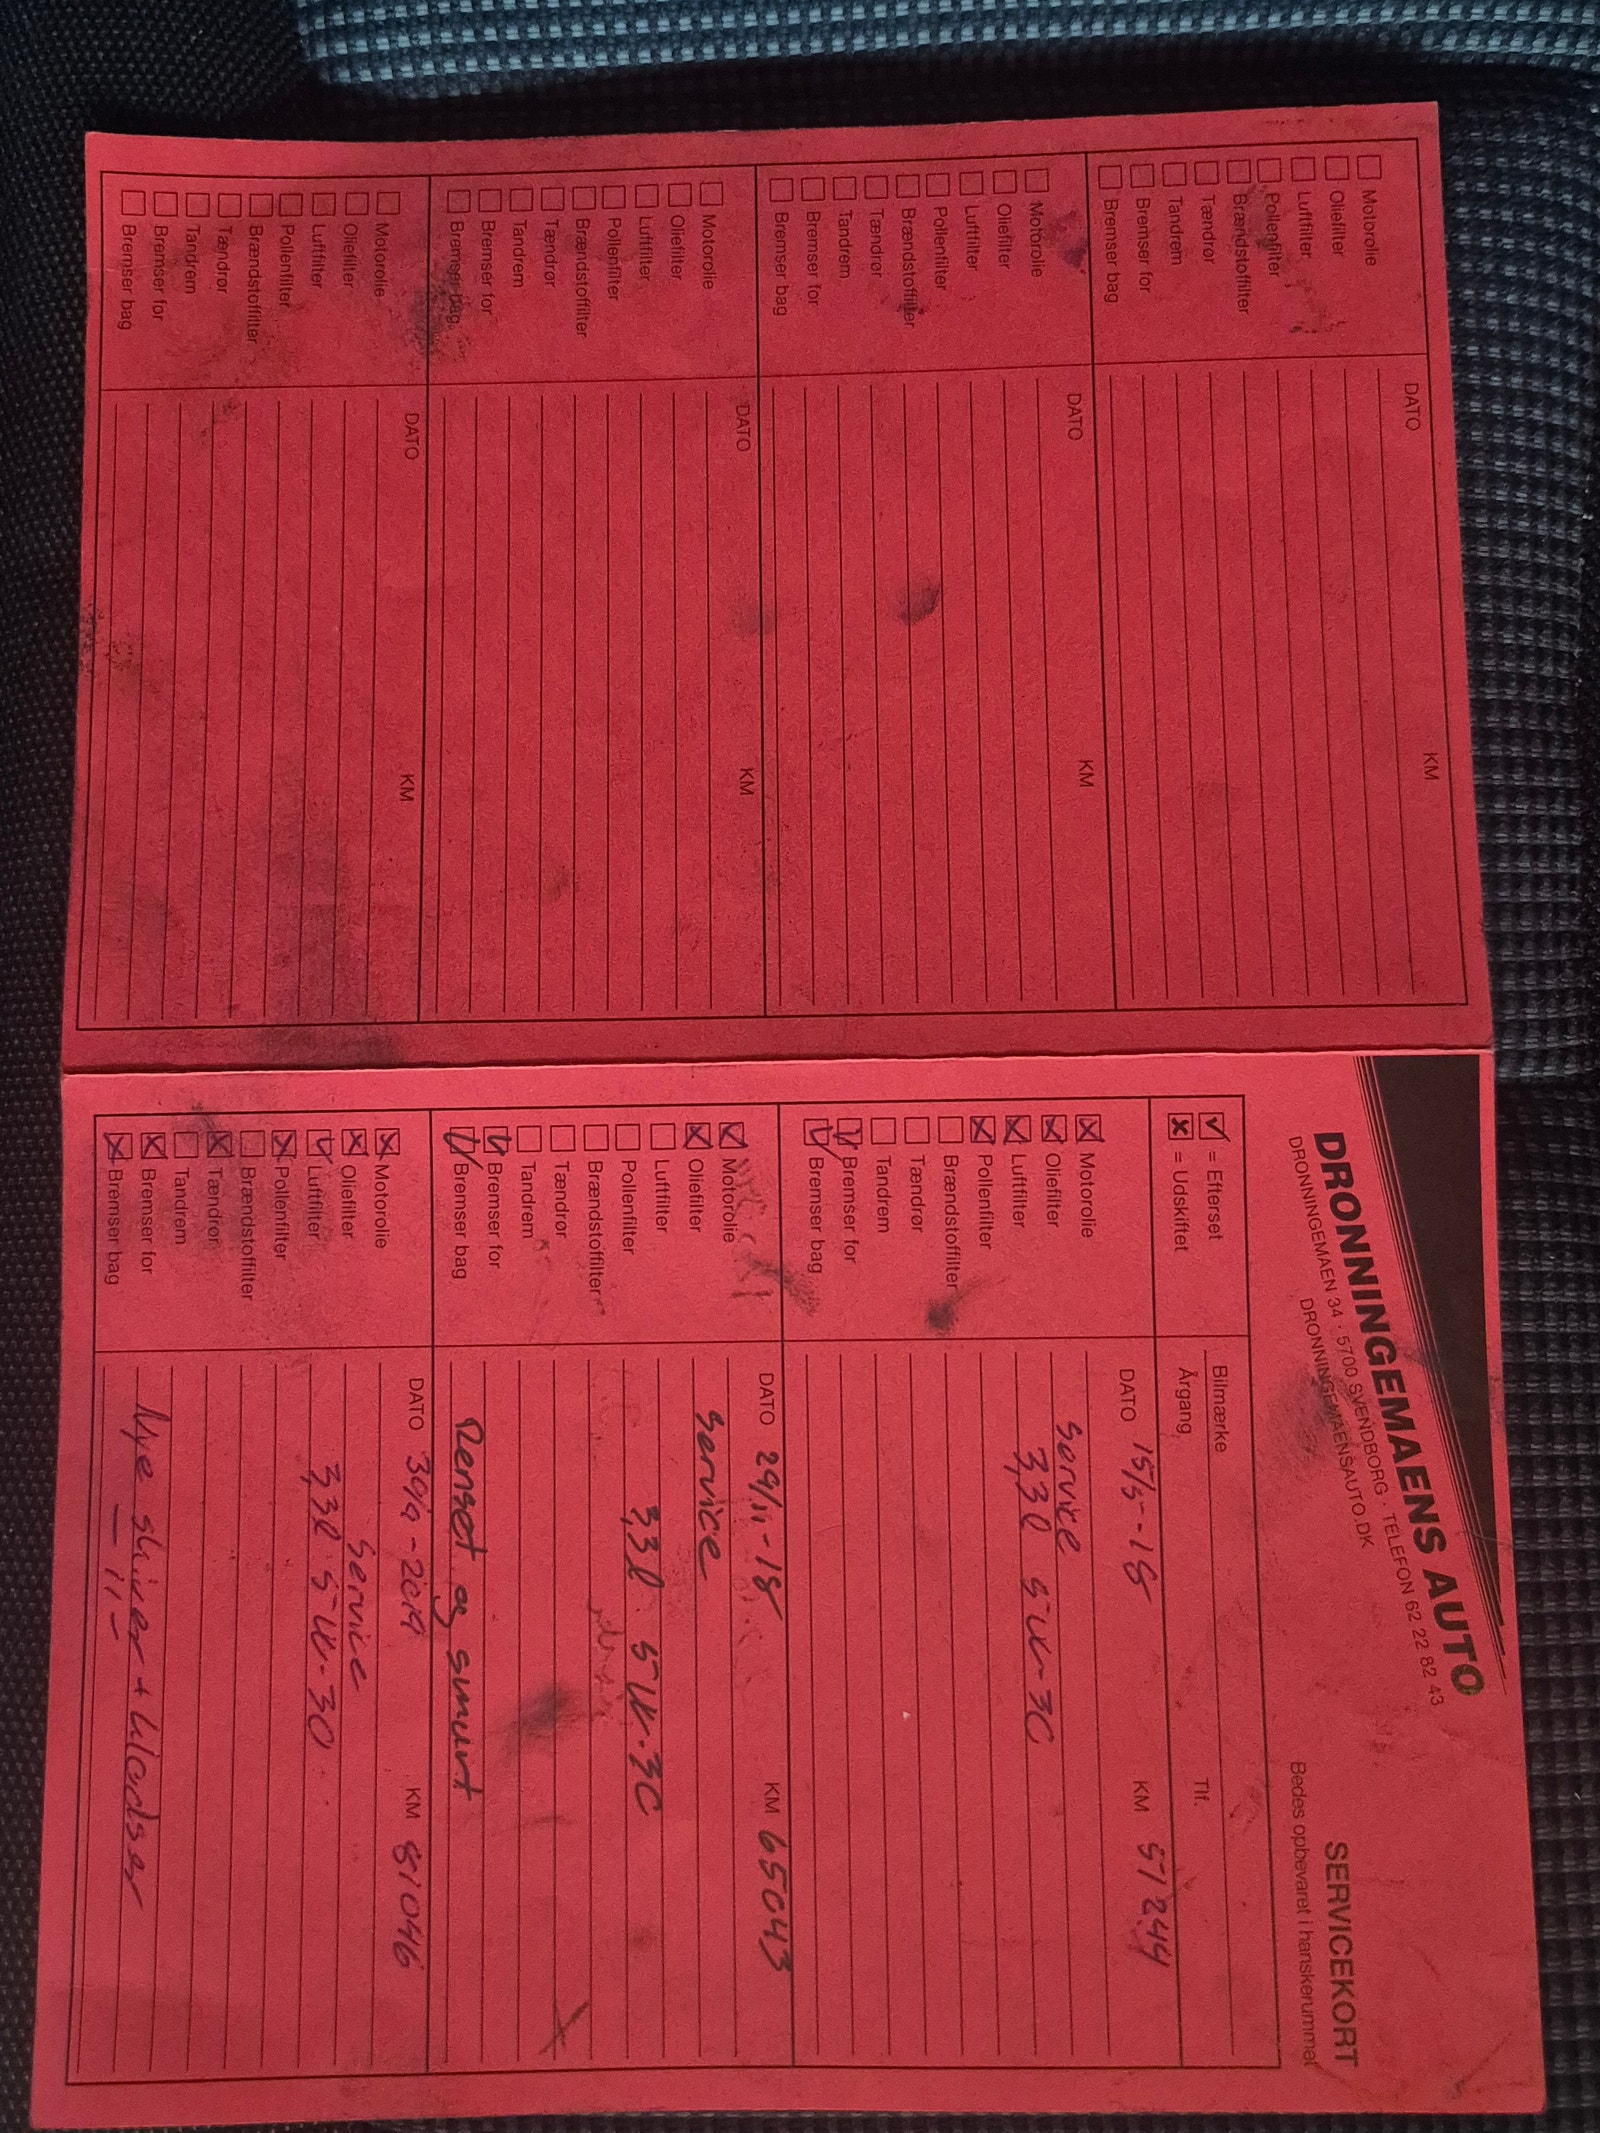 DRONNINGEMAENS AUTO
DRONNINGEMAEN 34 · 5700 SVENDBORG · TELEFON 62 22 82 43
DRONNINGEMAENSAUTO.DK
SERVICEKORT
Bedes opbevaret i hanskerummet
= Efterset
= Udskiftet
Bilmærke
Årgang
Tlf.
Motorolie
Oliefilter
Luftfilter
Pollenfilter
Brændstoffilter
Tændrør
Tandrem
Bremser for
Bremser bag
DATO 15/5-18 KM 51244
Service
3,3l 5W-30
Motorolie
Oliefilter
Luftfilter
Pollenfilter
Brændstoffilter
Tændrør
Tandrem
Bremser for
Bremser bag
DATO 29/11-18 KM 65043
Service
3,3l 5W-30
Renset og smurt
Motorolie
Oliefilter
Luftfilter
Pollenfilter
Brændstoffilter
Tændrør
Tandrem
Bremser for
Bremser bag
DATO 30/9-2019 KM 81046
Service
3,3l 5W-30
Nye skiver + klodser
— 11 —
Motorolie
Oliefilter
Luftfilter
Pollenfilter
Brændstoffilter
Tændrør
Tandrem
Bremser for
Bremser bag
DATO KM
Motorolie
Oliefilter
Luftfilter
Pollenfilter
Brændstoffilter
Tændrør
Tandrem
Bremser for
Bremser bag
DATO KM
Motorolie
Oliefilter
Luftfilter
Pollenfilter
Brændstoffilter
Tændrør
Tandrem
Bremser for
Bremser bag
DATO KM
Motorolie
Oliefilter
Luftfilter
Pollenfilter
Brændstoffilter
Tændrør
Tandrem
Bremser for
Bremser bag
DATO KM